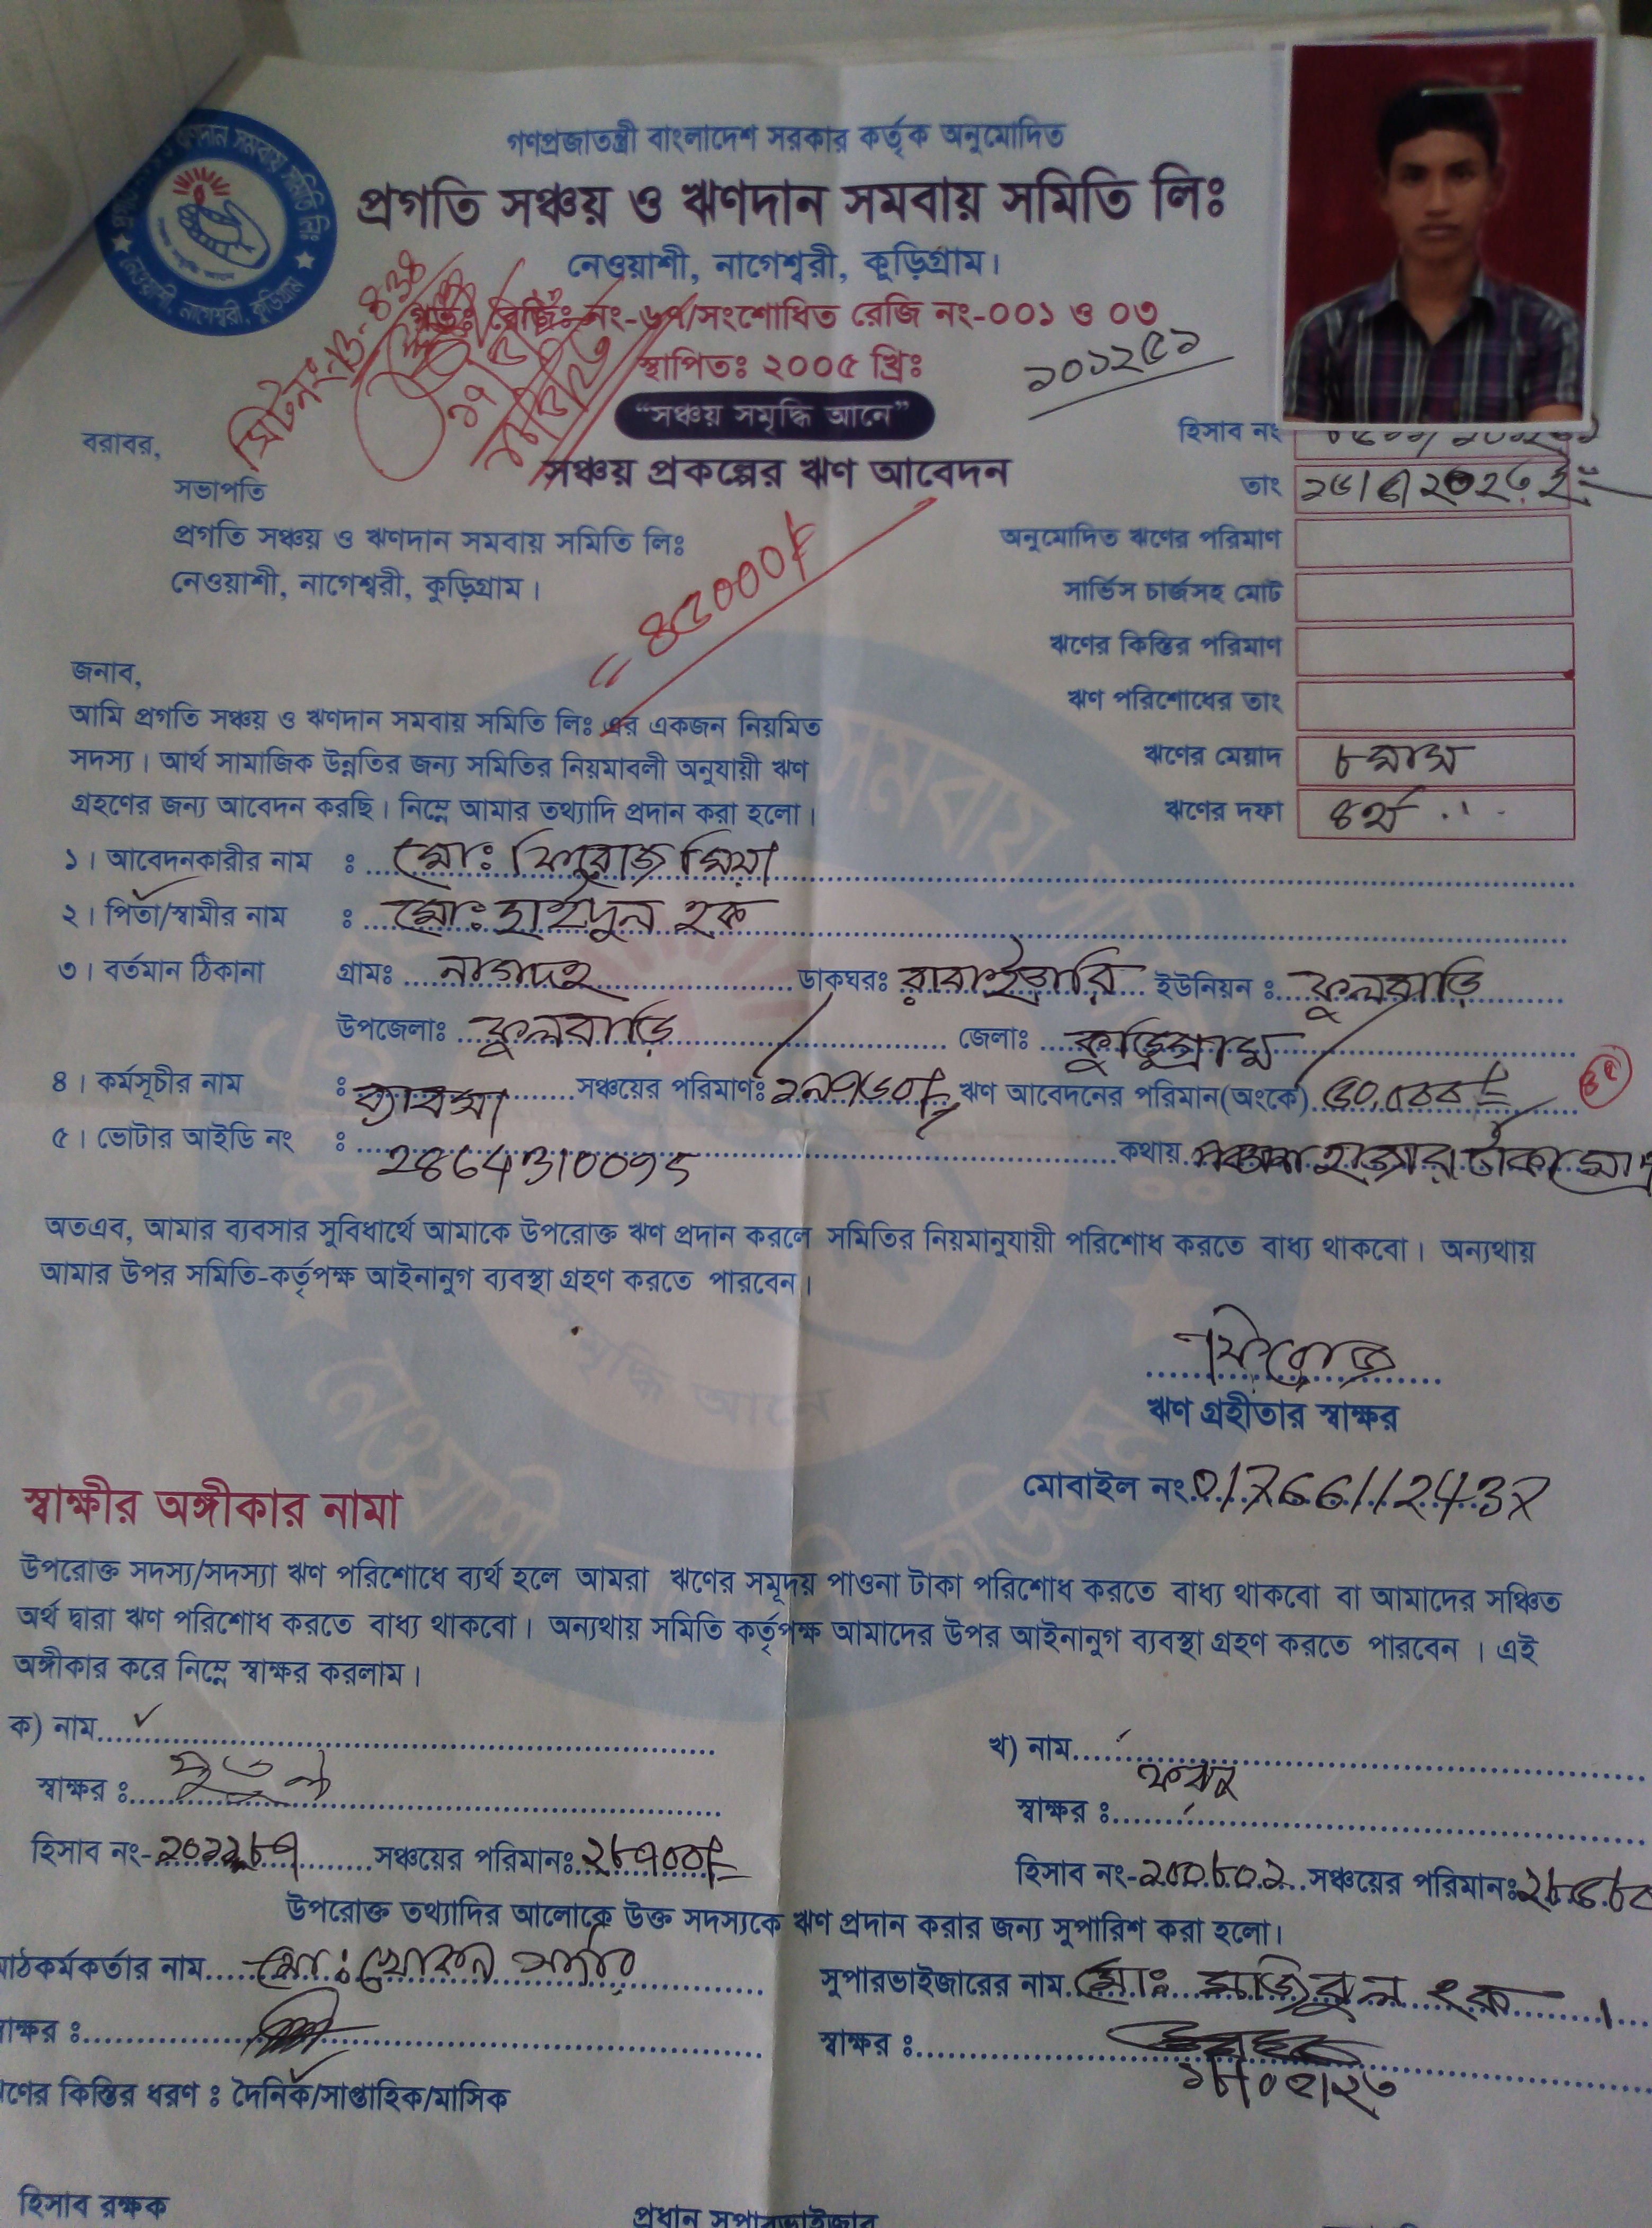 গণপ্রজাতন্ত্রী বাংলাদেশ সরকার কর্তৃক অনুমোদিত
প্রগতি সঞ্চয় ও ঋণদান সমবায় সমিতি লিঃ
নেওয়াশী, নাগেশ্বরী, কুড়িগ্রাম।
রেজিঃ নং-৬৭/সংশোধিত রেজি নং-০০১ ও ০৩
স্থাপিতঃ ২০০৫ খ্রিঃ
১০১২৫১
“সঞ্চয় সমৃদ্ধি আনে”
সঞ্চয় প্রকল্পের ঋণ আবেদন
হিসাব নং
তাং
অনুমোদিত ঋণের পরিমাণ
সার্ভিস চার্জসহ মোট
ঋণের কিস্তির পরিমাণ
ঋণ পরিশোধের তাং
ঋণের মেয়াদ ৮ মাস
ঋণের দফা ৪র্থ
বরাবর,
সভাপতি
প্রগতি সঞ্চয় ও ঋণদান সমবায় সমিতি লিঃ
নেওয়াশী, নাগেশ্বরী, কুড়িগ্রাম।
জনাব,
আমি প্রগতি সঞ্চয় ও ঋণদান সমবায় সমিতি লিঃ এর একজন নিয়মিত
সদস্য। আর্থ সামাজিক উন্নতির জন্য সমিতির নিয়মাবলী অনুযায়ী ঋণ
গ্রহণের জন্য আবেদন করছি। নিম্নে আমার তথ্যাদি প্রদান করা হলো।
১। আবেদনকারীর নাম : মোঃ ফিরোজ মিয়া
২। পিতা/স্বামীর নাম : মোঃ হাইদুল হক
৩। বর্তমান ঠিকানা গ্রামঃ নাগদহ ডাকঘরঃ রাবাইতারি ইউনিয়ন : ফুলবাড়ি
উপজেলাঃ ফুলবাড়ি জেলাঃ কুড়িগ্রাম
৪। কর্মসূচীর নাম : ব্যাবসা সঞ্চয়ের পরিমাণঃ ঋণ আবেদনের পরিমান(অংকে) ৫০,০০০/=
৫। ভোটার আইডি নং : 2864310095 কথায় পঞ্চাশ হাজার টাকা মাত্র
অতএব, আমার ব্যবসার সুবিধার্থে আমাকে উপরোক্ত ঋণ প্রদান করলে সমিতির নিয়মানুযায়ী পরিশোধ করতে বাধ্য থাকবো। অন্যথায়
আমার উপর সমিতি-কর্তৃপক্ষ আইনানুগ ব্যবস্থা গ্রহণ করতে পারবেন।
ফিরোজ
ঋণ গ্রহীতার স্বাক্ষর
মোবাইল নং 01766112437
স্বাক্ষীর অঙ্গীকার নামা
উপরোক্ত সদস্য/সদস্যা ঋণ পরিশোধে ব্যর্থ হলে আমরা ঋণের সমূদয় পাওনা টাকা পরিশোধ করতে বাধ্য থাকবো বা আমাদের সঞ্চিত
অর্থ দ্বারা ঋণ পরিশোধ করতে বাধ্য থাকবো। অন্যথায় সমিতি কর্তৃপক্ষ আমাদের উপর আইনানুগ ব্যবস্থা গ্রহণ করতে পারবেন । এই
অঙ্গীকার করে নিম্নে স্বাক্ষর করলাম।
ক) নাম
খ) নাম
স্বাক্ষর :
স্বাক্ষর :
হিসাব নং- সঞ্চয়ের পরিমানঃ ২৮৭০০/=
হিসাব নং-২০০৮০২ সঞ্চয়ের পরিমানঃ
উপরোক্ত তথ্যাদির আলোকে উক্ত সদস্যকে ঋণ প্রদান করার জন্য সুপারিশ করা হলো।
মাঠকর্মকর্তার নাম মোঃ খোকন সুপারভাইজারের নাম মোঃ মজিবুল হক
স্বাক্ষর : স্বাক্ষর :
ঋণের কিস্তির ধরণ : দৈনিক/সাপ্তাহিক/মাসিক
হিসাব রক্ষক
প্রধান সুপারভাইজার